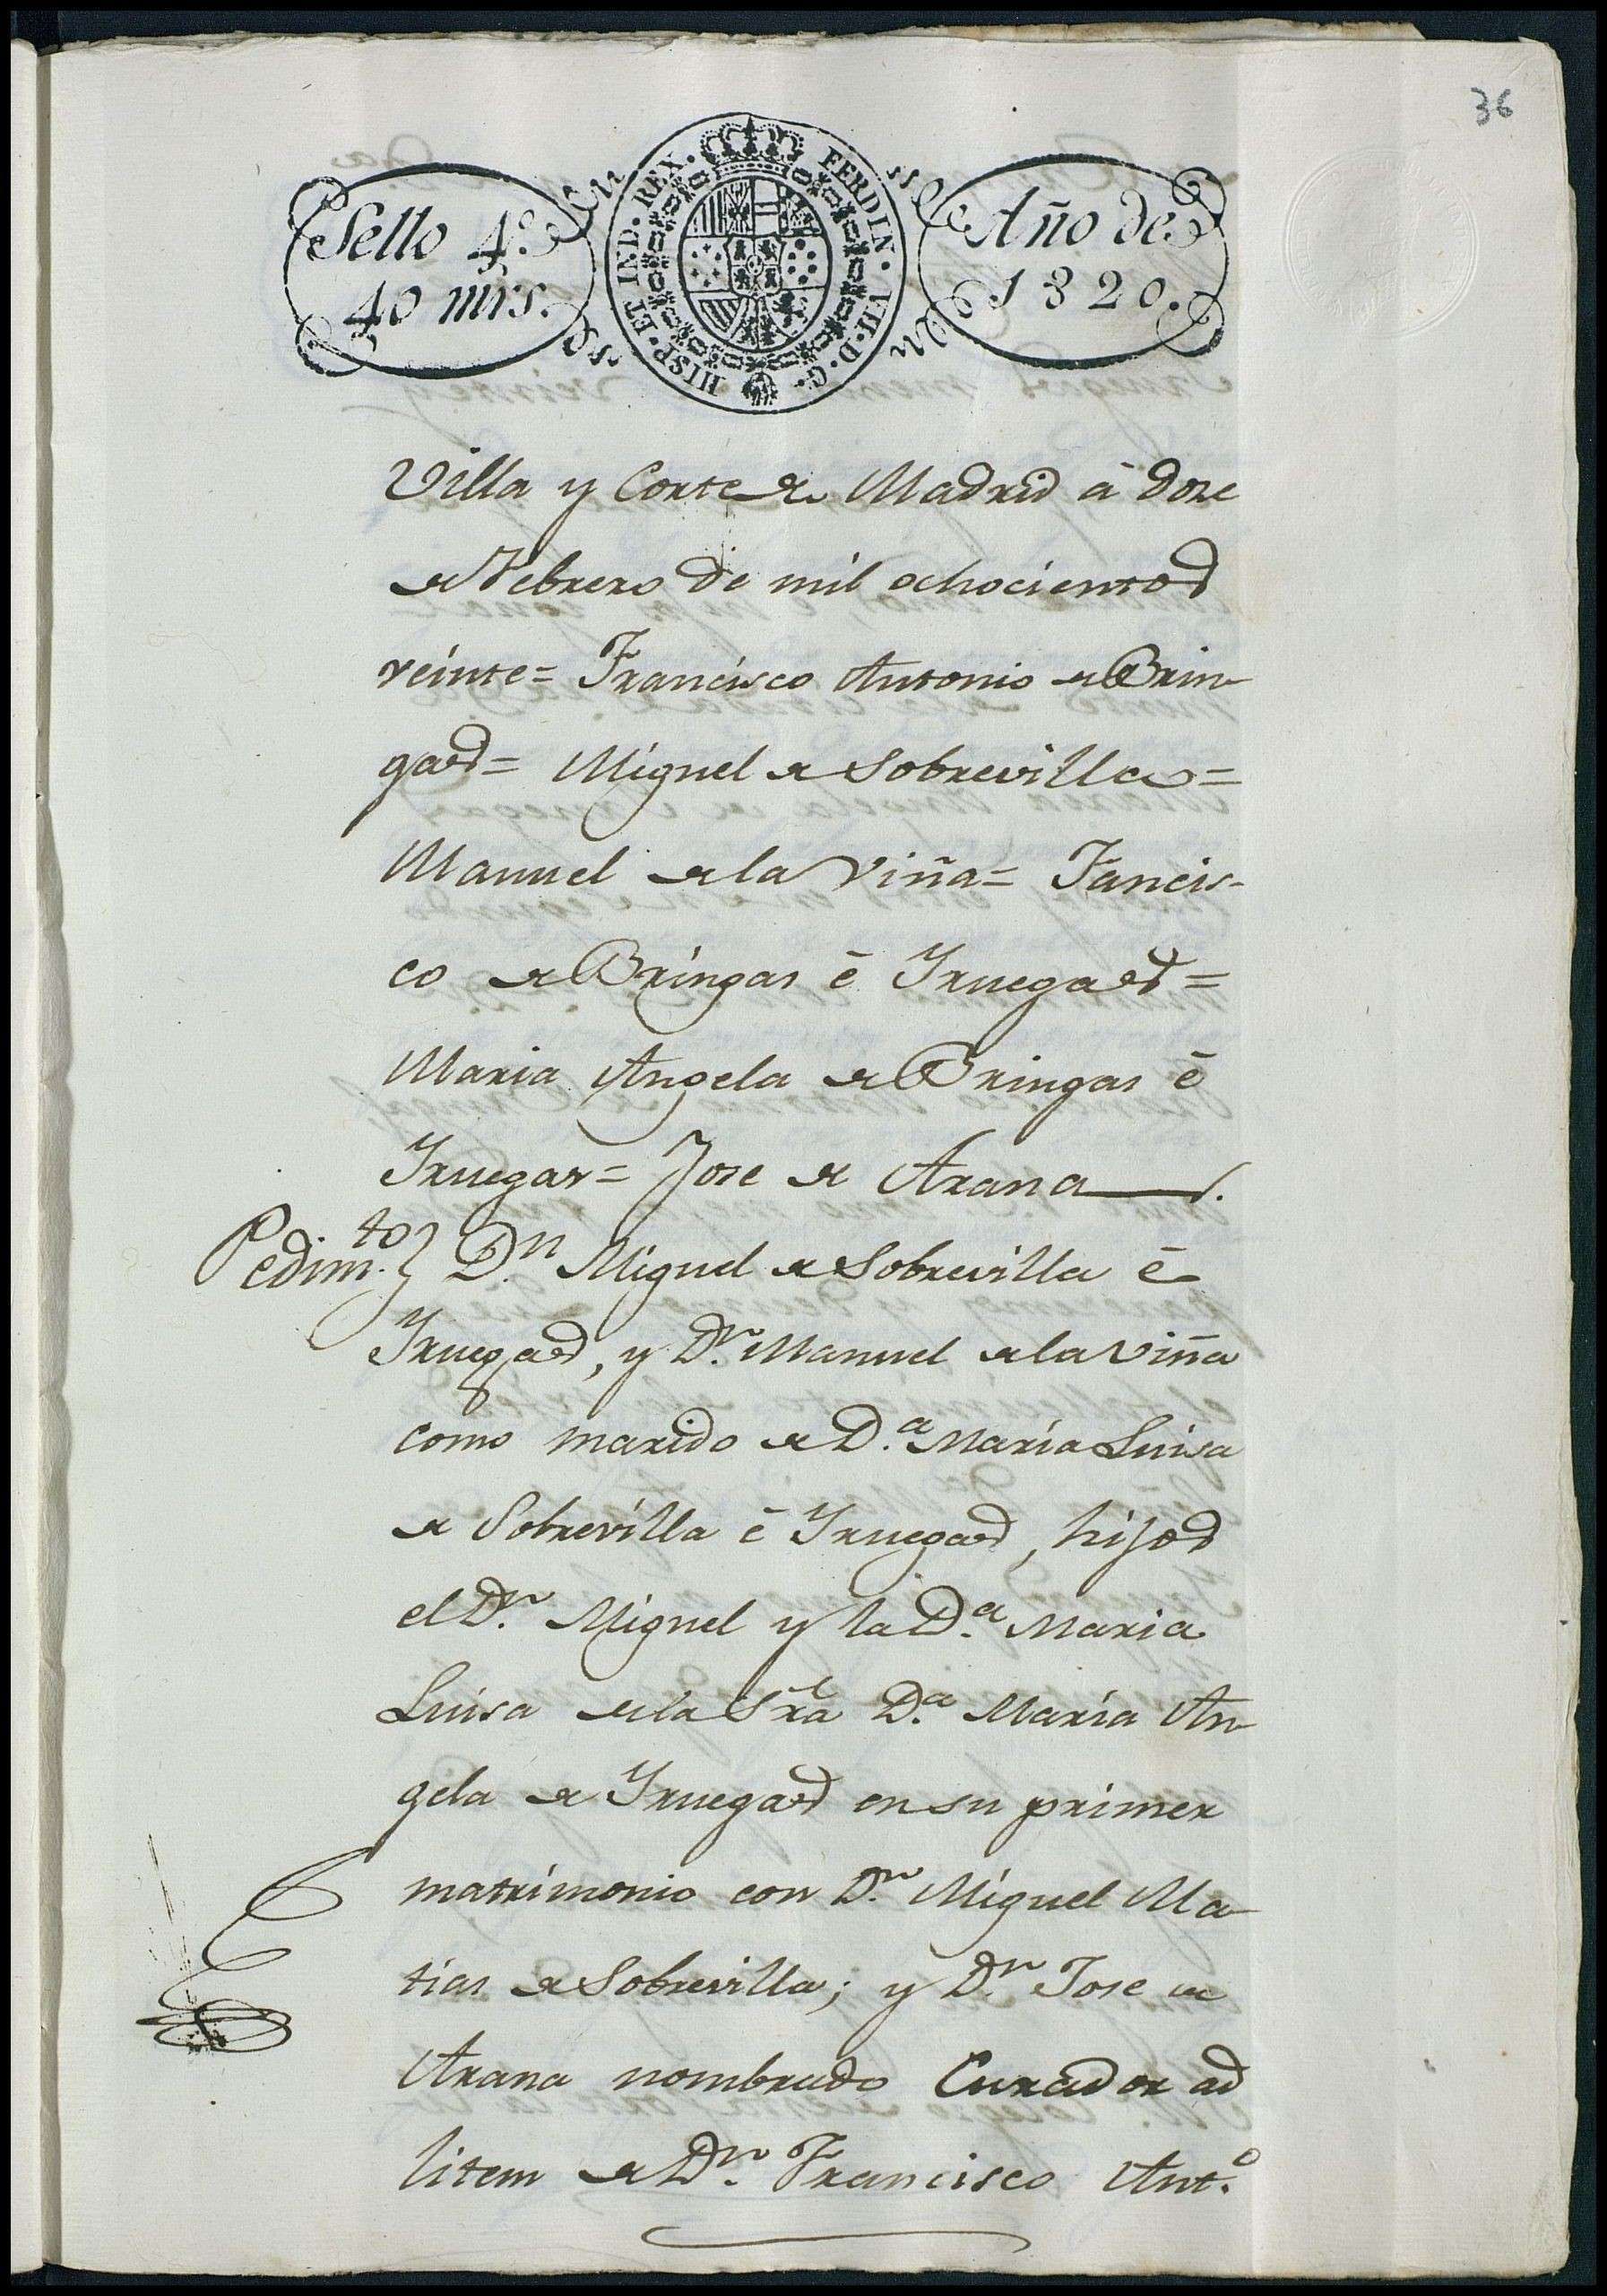 36
Sello 4.º
40 mrs.
HISP. ET IND. REX. FERDIN. VII. D. G.
Año de
1820.
Villa y Corte de Madrid à doze
de Febrero de mil ochocientos
veinte= Francisco Antonio de Brin-
gas= Miguel de Sobrevilla=
Manuel de la Viña= Fancis-
co de Bringas é Yruegas=
Maria Angela de Bringas é
Yruegas= Jose de Arana
Pedim.to } D.n Miguel de Sobrevilla é
Yruegas, y D.n Manuel de la Viña
como marido de D.a María Luisa
de Sobrevilla é Yruegas, hijos
el D.n Miguel y la D.a Maria
Luisa de la Sra D.a María An-
gela de Yruegas en su primer
matrimonio con D.n Miguel Ma-
tias de Sobrevilla; y D.n Jose de
Arana nombrado Curador ad
litem de D.n Francisco Ant.o